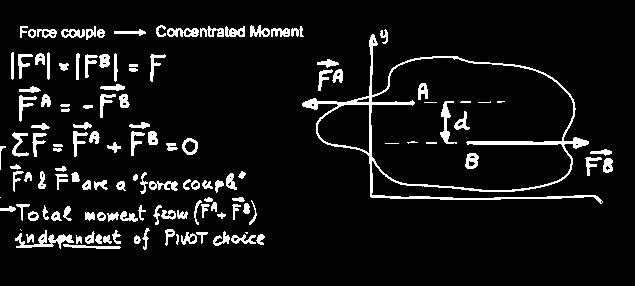 Force couple → Concentrated Moment
|F^A| = |F^B| = F
F⃗^A = -F⃗^B
ΣF⃗ = F⃗^A + F⃗^B = 0
F⃗^A & F⃗^B are a "force couple"
→ Total moment from (F⃗^A + F⃗^B)
independent of PIVOT choice
y
F⃗^A
A
d
B
F⃗^B